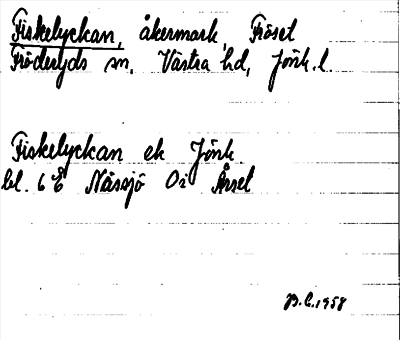 Fiskelyckan, åkermark, Fröset
Fröderyds sn, Västra hd, Jönk. l.
Fiskelyckan ek Jönk.
bl. 6 E Nässjö Oi Årset
B.L. 1958